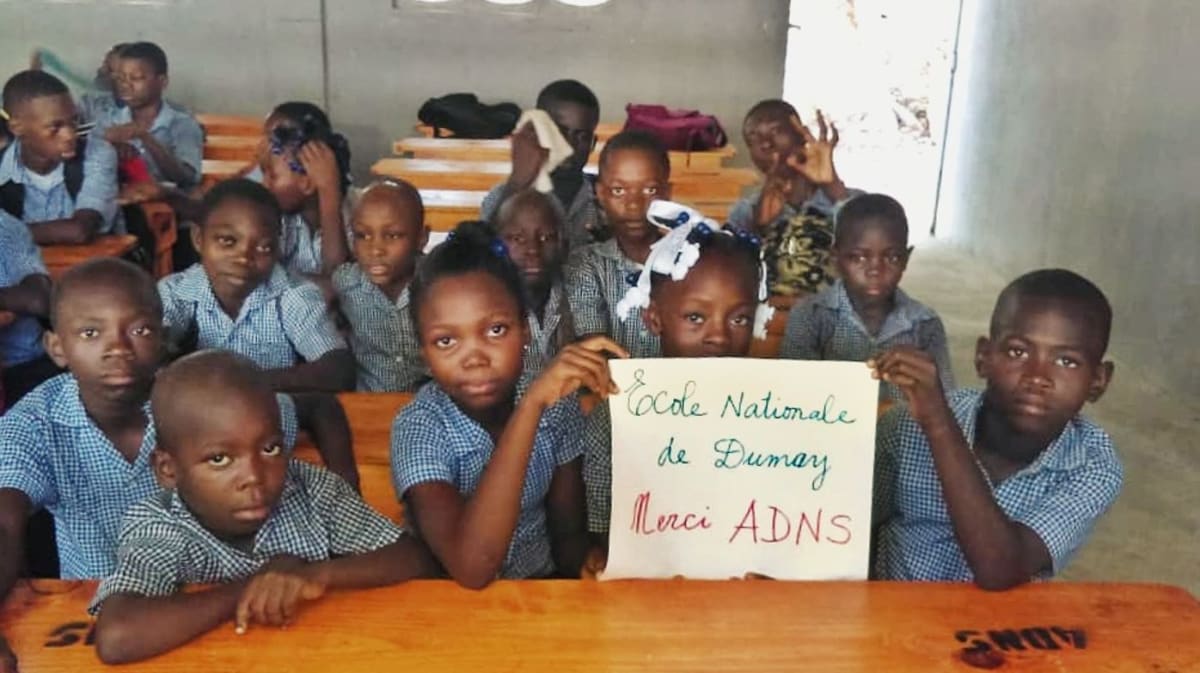 École Nationale
de Dumay
Merci ADNS
ADNS